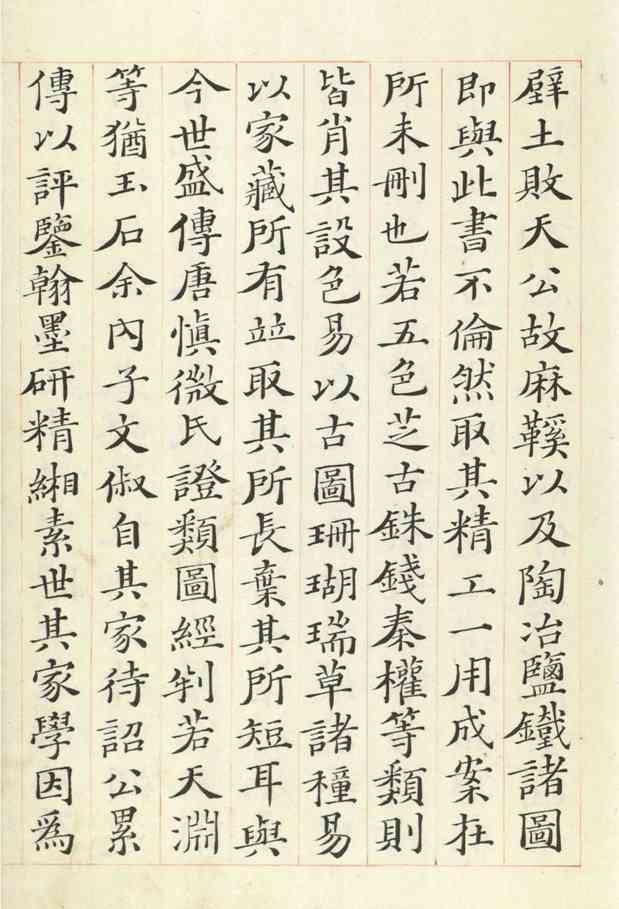 壁土敗天公故麻鞵以及陶冶鹽鐵諸圖
即與此書不倫然取其精工一用成案在
所未刪也若五色芝古銖錢秦權等類則
皆肖其設色易以古圖珊瑚瑞草諸種易
以家藏所有竝取其所長棄其所短耳與
今世盛傳唐慎微氏證類圖經判若天淵
等猶玉石余內子文俶自其家待詔公累
傳以評鑒翰墨研精緗素世其家學因爲